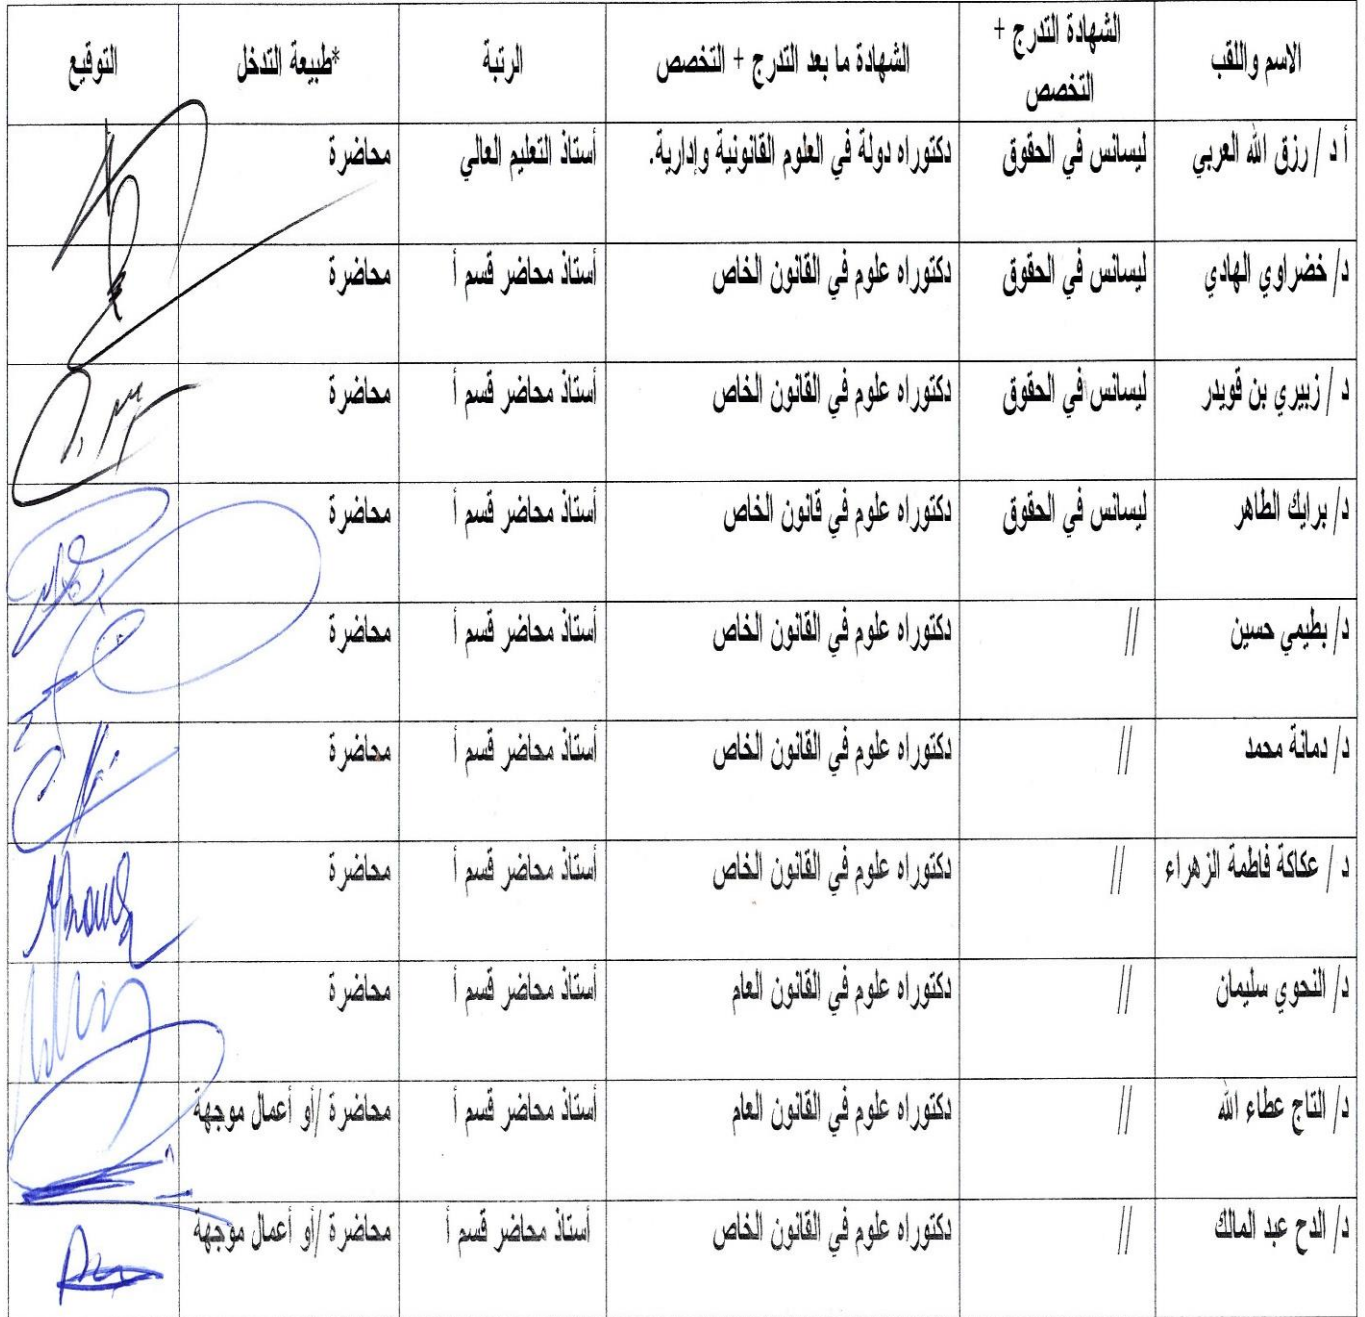 الاسم واللقب الشهادة التدرج + التخصص الشهادة ما بعد التدرج + التخصص الرتبة *طبيعة التدخل التوقيع
أ د / رزق الله العربي ليسانس في الحقوق دكتوراه دولة في العلوم القانونية وإدارية. أستاذ التعليم العالي محاضرة
د/ خضراوي الهادي ليسانس في الحقوق دكتوراه علوم في القانون الخاص أستاذ محاضر قسم أ محاضرة
د / زبيري بن قويدر ليسانس في الحقوق دكتوراه علوم في القانون الخاص أستاذ محاضر قسم أ محاضرة
د/ برابك الطاهر ليسانس في الحقوق دكتوراه علوم في قانون الخاص أستاذ محاضر قسم أ محاضرة
د/ بطيمي حسين // دكتوراه علوم في القانون الخاص أستاذ محاضر قسم أ محاضرة
د/ دمانة محمد // دكتوراه علوم في القانون الخاص أستاذ محاضر قسم أ محاضرة
د / عكاكة فاطمة الزهراء // دكتوراه علوم في القانون الخاص أستاذ محاضر قسم أ محاضرة
د/ النحوي سليمان // دكتوراه علوم في القانون العام أستاذ محاضر قسم أ محاضرة
د/ التاج عطاء الله // دكتوراه علوم في القانون العام أستاذ محاضر قسم أ محاضرة /أو أعمال موجهة
د/ الدح عبد المالك // دكتوراه علوم في القانون الخاص أستاذ محاضر قسم أ محاضرة /أو أعمال موجهة